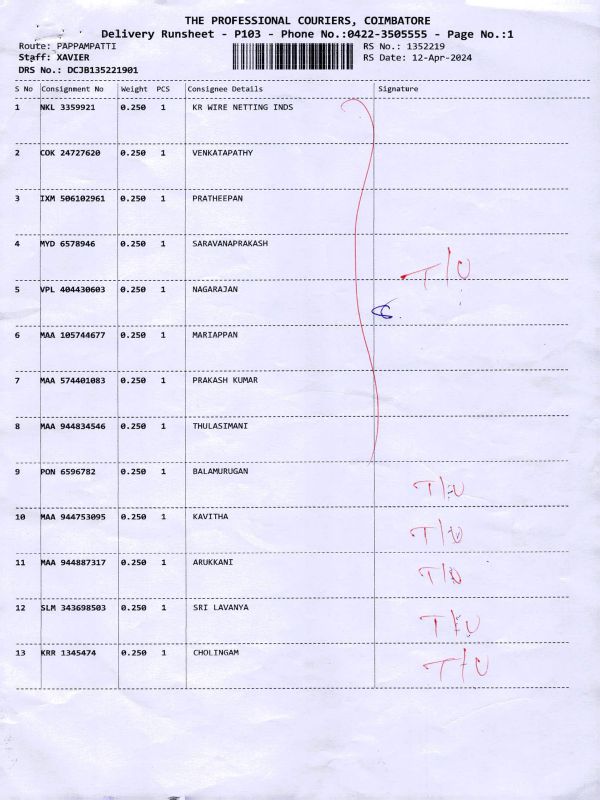 THE PROFESSIONAL COURIERS, COIMBATORE
Delivery Runsheet - P103 - Phone No.:0422-3505555 - Page No.:1
Route: PAPPAMPATTI RS No.: 1352219
Staff: XAVIER RS Date: 12-Apr-2024
DRS No.: DCJB135221901
S No Consignment No Weight PCS Consignee Details Signature
1 NKL 3359921 0.250 1 KR WIRE NETTING INDS
2 COK 24727620 0.250 1 VENKATAPATHY
3 IXM 506102961 0.250 1 PRATHEEPAN
4 MYD 6578946 0.250 1 SARAVANAPRAKASH T/U
5 VPL 404430603 0.250 1 NAGARAJAN
6 MAA 105744677 0.250 1 MARIAPPAN
7 MAA 574401083 0.250 1 PRAKASH KUMAR
8 MAA 944834546 0.250 1 THULASIMANI
9 PON 6596782 0.250 1 BALAMURUGAN T/U
10 MAA 944753095 0.250 1 KAVITHA T/U
11 MAA 944887317 0.250 1 ARUKKANI T/U
12 SLM 343698503 0.250 1 SRI LAVANYA T/U
13 KRR 1345474 0.250 1 CHOLINGAM T/U